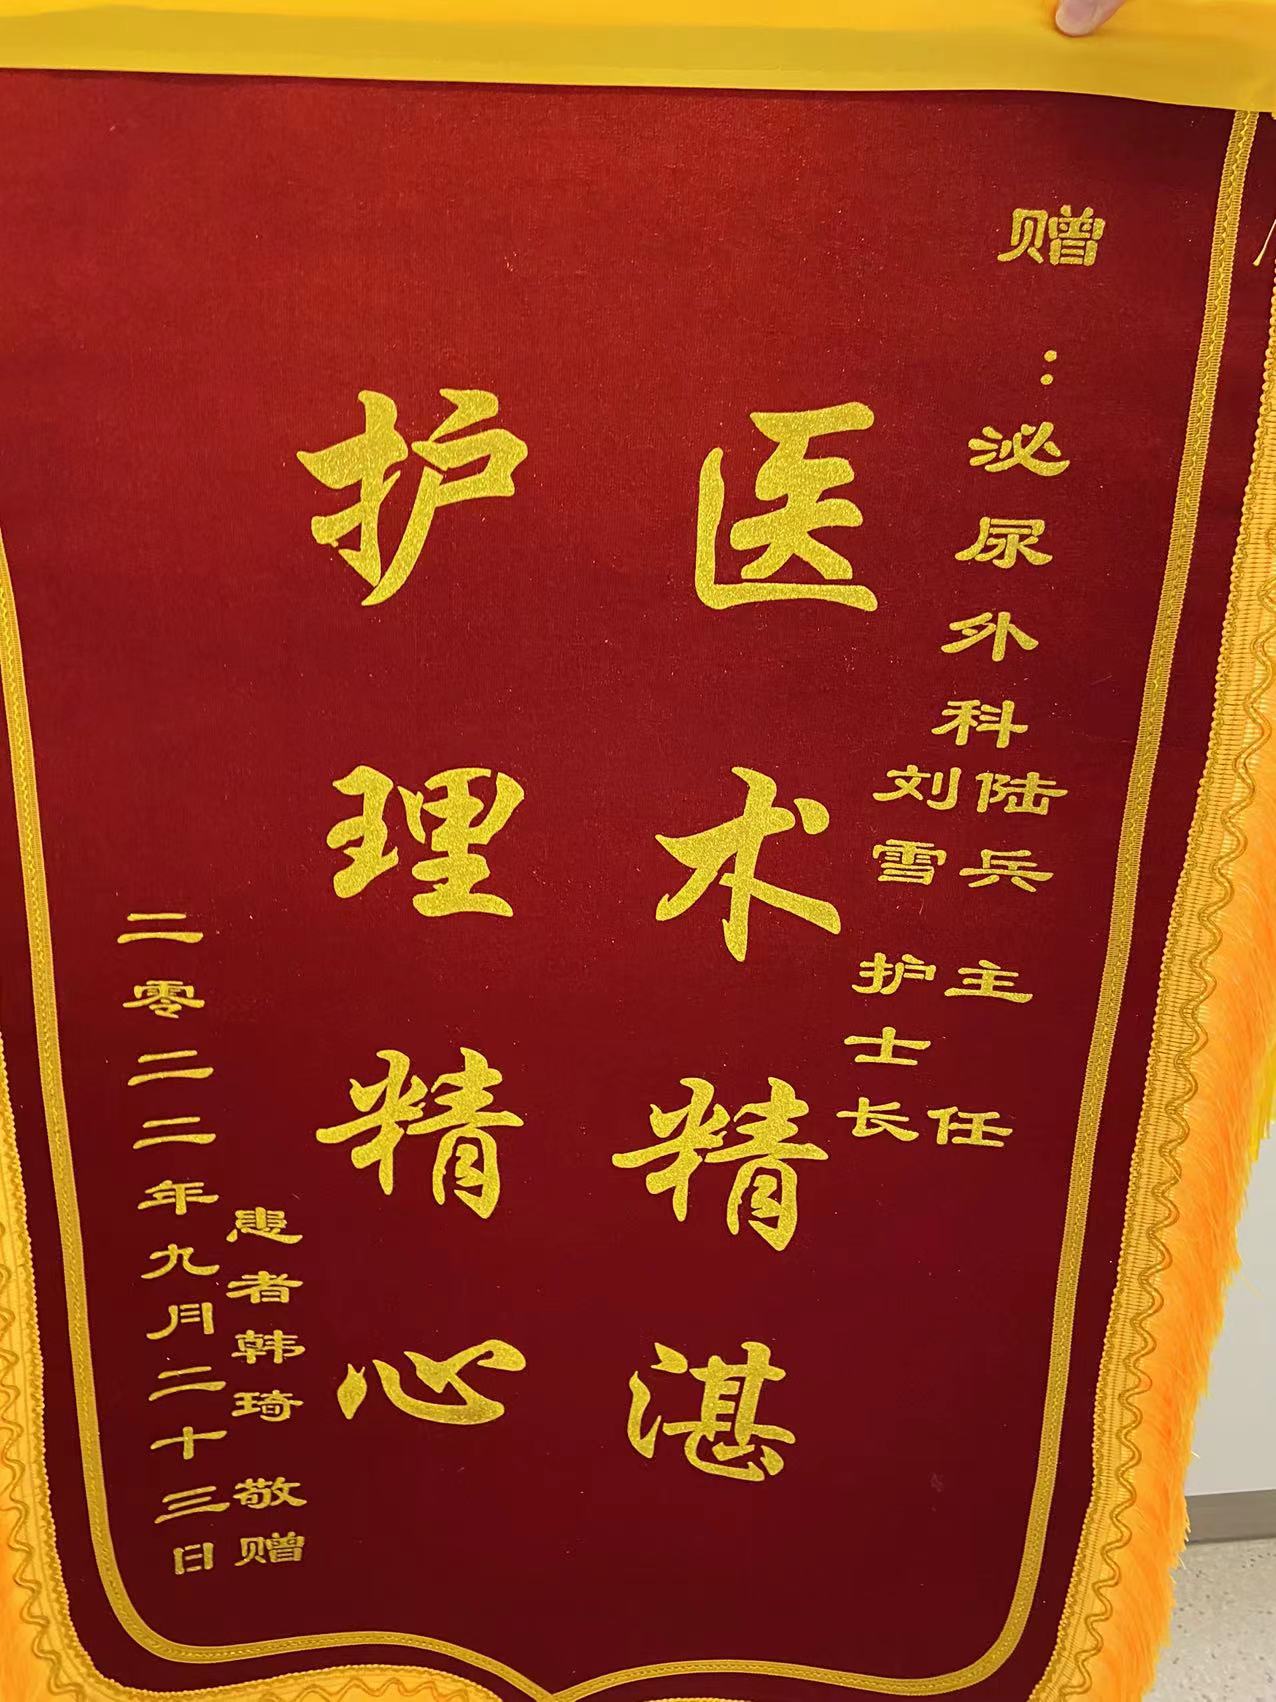 赠：泌尿外科
陆兵 主任
刘雪 护士长
医术精湛
护理精心
患者韩琦 敬赠
二零二二年九月二十三日